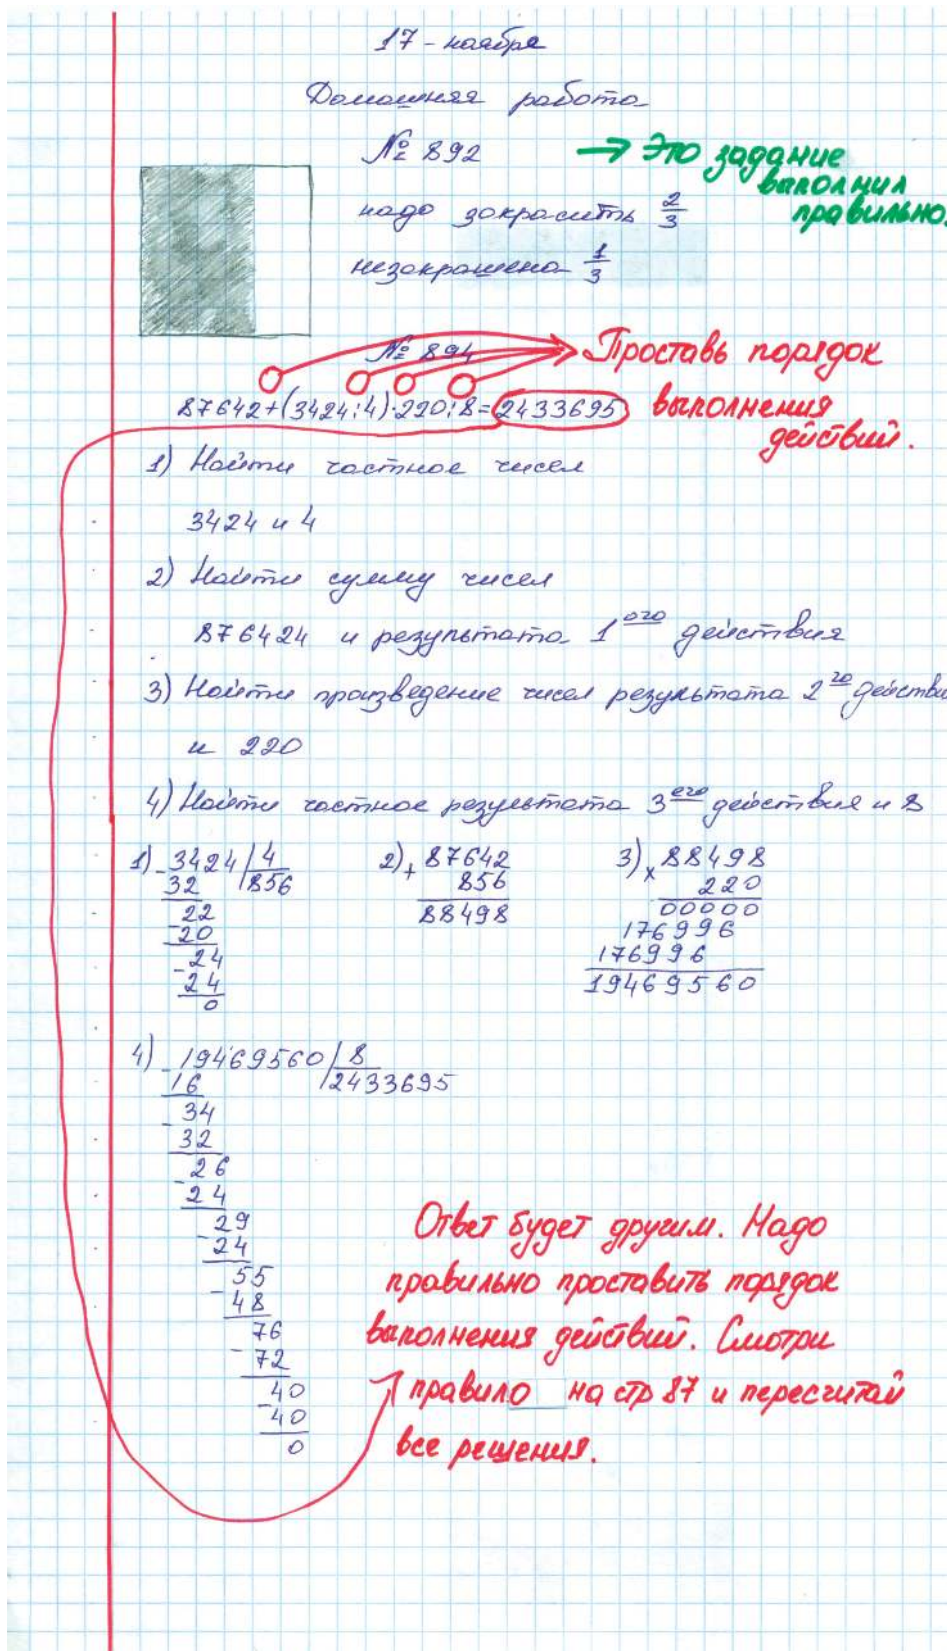 17 - ноября
Домашняя работа
№ 892
→ Это задание
выполнил
правильно.
надо закрасить 2/3
незакрашена 1/3
№ 894
Проставь порядок
выполнения
действий.
87642+(3424:4)·220:8=2433695
1) Найти частное чисел
3424 и 4
2) Найти сумму чисел
876424 и результата 1 ого действия
3) Найти произведение чисел результата 2 го действи
и 220
4) Найти частное результата 3 его действия и 8
1) - 3424 | 4
32 | 856
22
- 20
- 24
24
0
2) + 87642
856
88498
3) x 88498
220
00000
176996
176996
19469560
4) - 19469560 | 8
16 | 2433695
- 34
32
- 26
24
- 29
24
- 55
48
- 76
72
- 40
40
0
Ответ будет другим. Надо
правильно проставить порядок
выполнения действий. Смотри
правило на стр 87 и пересчитай
все решения.